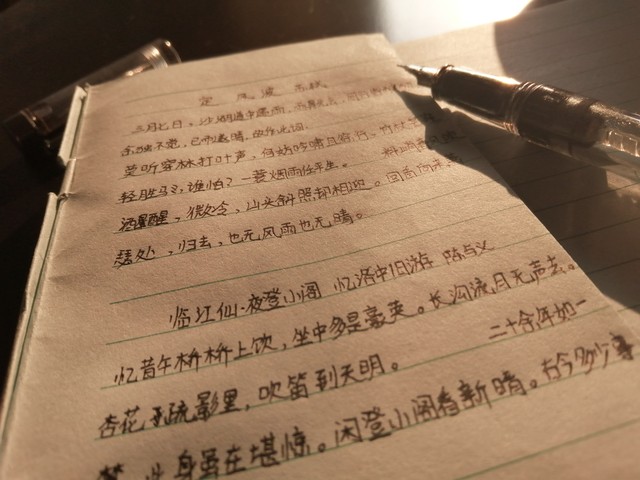 定风波 苏轼
三月七日，沙湖道中遇雨，雨具先去，同行
余独不觉，已而遂晴，故作此词。
莫听穿林打叶声，何妨吟啸且徐行。竹杖
轻胜马，谁怕？一蓑烟雨任平生。 料峭春风
酒醒，微冷，山头斜照却相迎。回首向来
瑟处，归去，也无风雨也无晴。
临江仙·夜登小阁 忆洛中旧游 陈与义
忆昔午桥桥上饮，坐中多是豪英。长沟流月无声去。
杏花疏影里，吹笛到天明。 二十余年如一
梦，此身虽在堪惊。闲登小阁看新晴。古今多少事